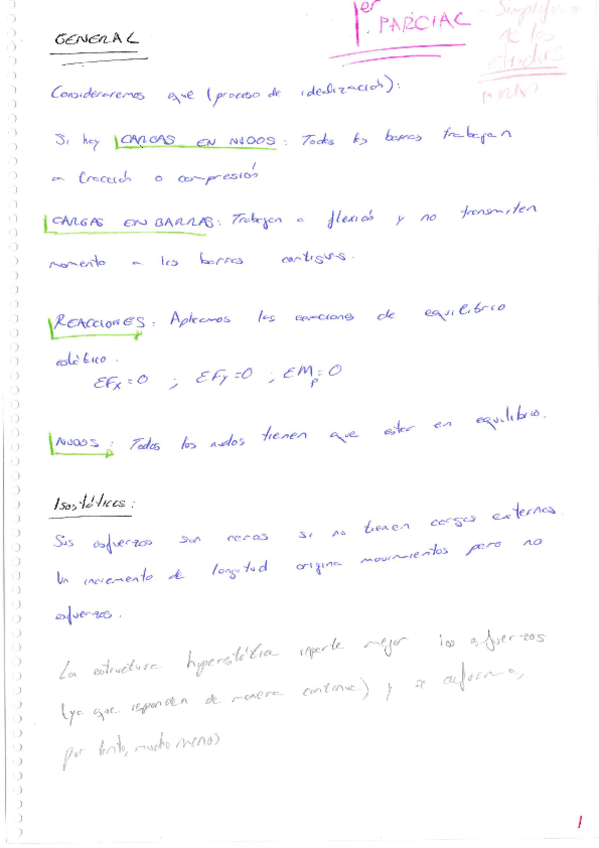 GENERAL
1er PARCIAL
Consideraremos que (proceso de idealización):
Si hay CARGAS EN NUDOS: Todas las barras trabajan
a tracción o compresión
CARGAS EN BARRAS: Trabajan a flexión y no transmiten
momento a las barras contiguas.
REACCIONES: Aplicamos las ecuaciones de equilibrio
estático.
ΣFx=0 ; ΣFy=0 ; ΣMp=0
NUDOS: Todos los nudos tienen que estar en equilibrio.
Isostáticas:
Sus esfuerzos son ceros si no tienen cargas externas.
Un incremento de longitud origina movimientos pero no
esfuerzos.
La estructura hyperestática reparte mejor los esfuerzos
(ya que responden de manera continua) y se deforma,
por tanto, mucho menos
1